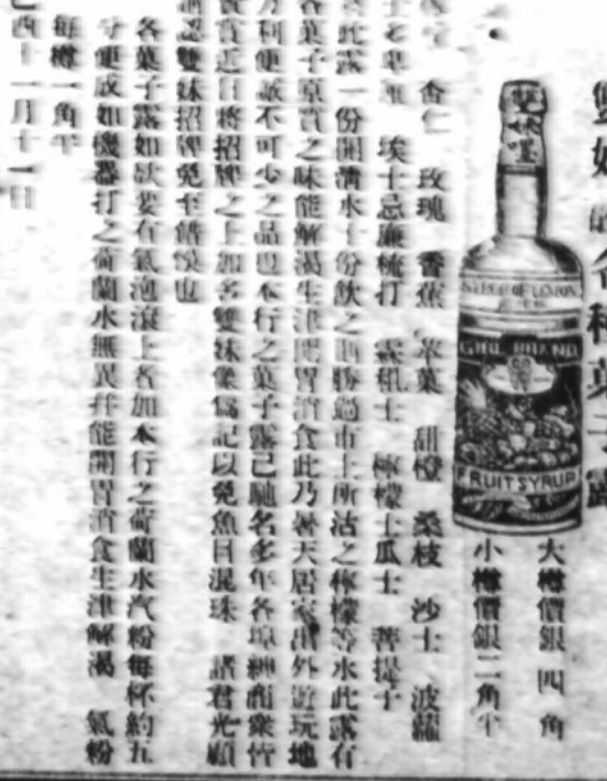 雙妹的各種菓子露
大樽價銀四角
小樽價銀二角半
雙妹嚜
GIRL BRAND
FRUIT SYRUP
杏仁 玫瑰 香蕉 苹菓 甜橙 桑枝 沙士 波蘿
士多卑厘 埃士忌廉梳打 檸檬士瓜士 菩提子
此露一份開清水十份飲之則勝過市上所沽之檸檬等水此露有
各菓子原質之味能解渴生津開胃消食此乃暑天居家出外遊玩地
方利便誠不可少之品也本行之菓子露已馳名多年各埠紳商衆皆
賞近日將招牌之上加各雙妹像爲記以免魚目混珠 諸君光顧
請認雙妹招牌免至錯悞也
各菓子露如欲要有氣泡滾上者加本行之荷蘭水汽粉每杯約五
分便成如機器打之荷蘭水無異幷能開胃消食生津解渴 氣粉
每樽一角半
己酉十一月十一日